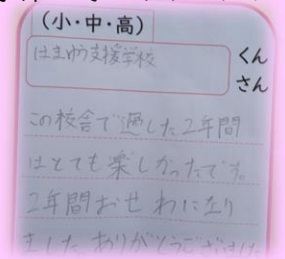 (小・中・高)
はまゆう支援学校
くん
さん
この校舎で過した2年間
はとても楽しかったです。
2年間おせわになり
ました。ありがとうございました